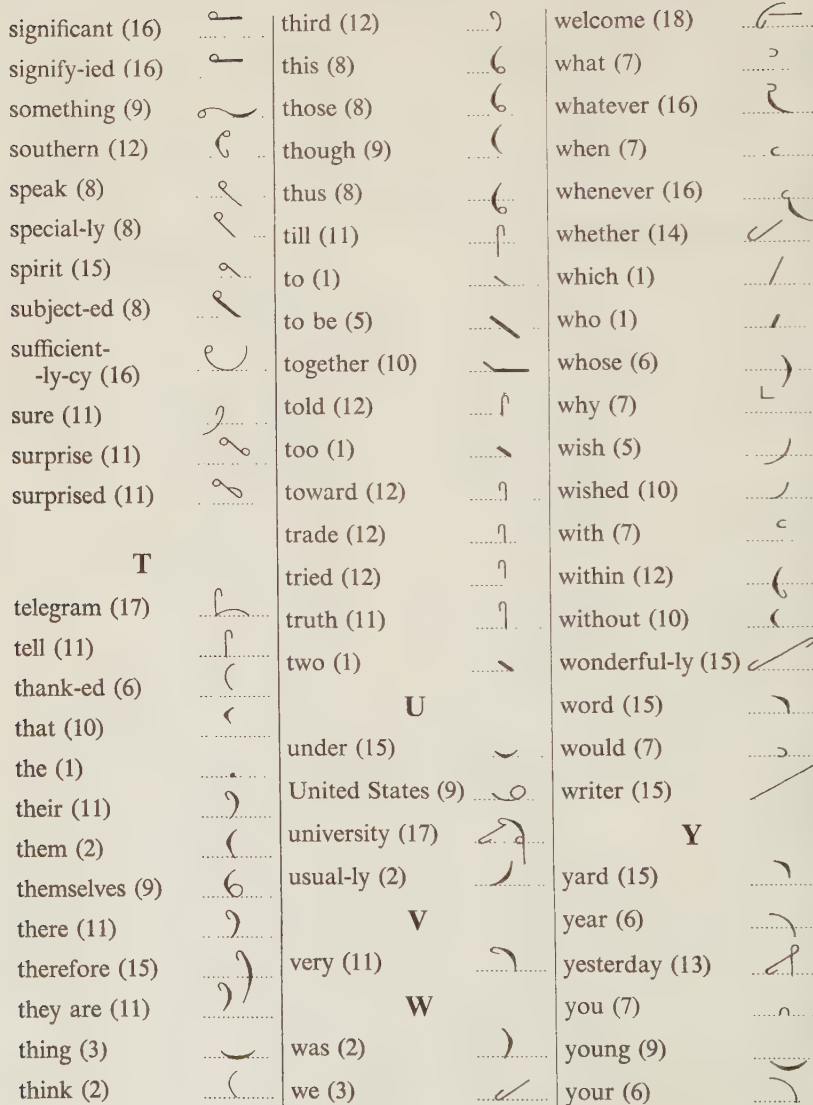 significant (16)
signify-ied (16)
something (9)
southern (12)
speak (8)
special-ly (8)
spirit (15)
subject-ed (8)
sufficient-
-ly-cy (16)
sure (11)
surprise (11)
surprised (11)
T
telegram (17)
tell (11)
thank-ed (6)
that (10)
the (1)
their (11)
them (2)
themselves (9)
there (11)
therefore (15)
they are (11)
thing (3)
think (2)
third (12)
this (8)
those (8)
though (9)
thus (8)
till (11)
to (1)
to be (5)
together (10)
told (12)
too (1)
toward (12)
trade (12)
tried (12)
truth (11)
two (1)
U
under (15)
United States (9)
university (17)
usual-ly (2)
V
very (11)
W
was (2)
we (3)
welcome (18)
what (7)
whatever (16)
when (7)
whenever (16)
whether (14)
which (1)
who (1)
whose (6)
why (7)
wish (5)
wished (10)
with (7)
within (12)
without (10)
wonderful-ly (15)
word (15)
would (7)
writer (15)
Y
yard (15)
year (6)
yesterday (13)
you (7)
young (9)
your (6)